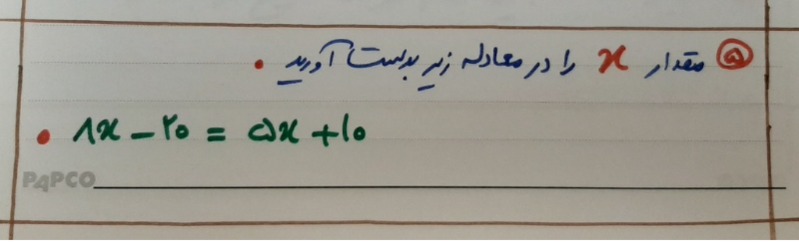 ۵ مقدار x را در معادله زیر بدست آورید .
• ۸x - ۲۰ = ۵x + ۱۰
PAPCO